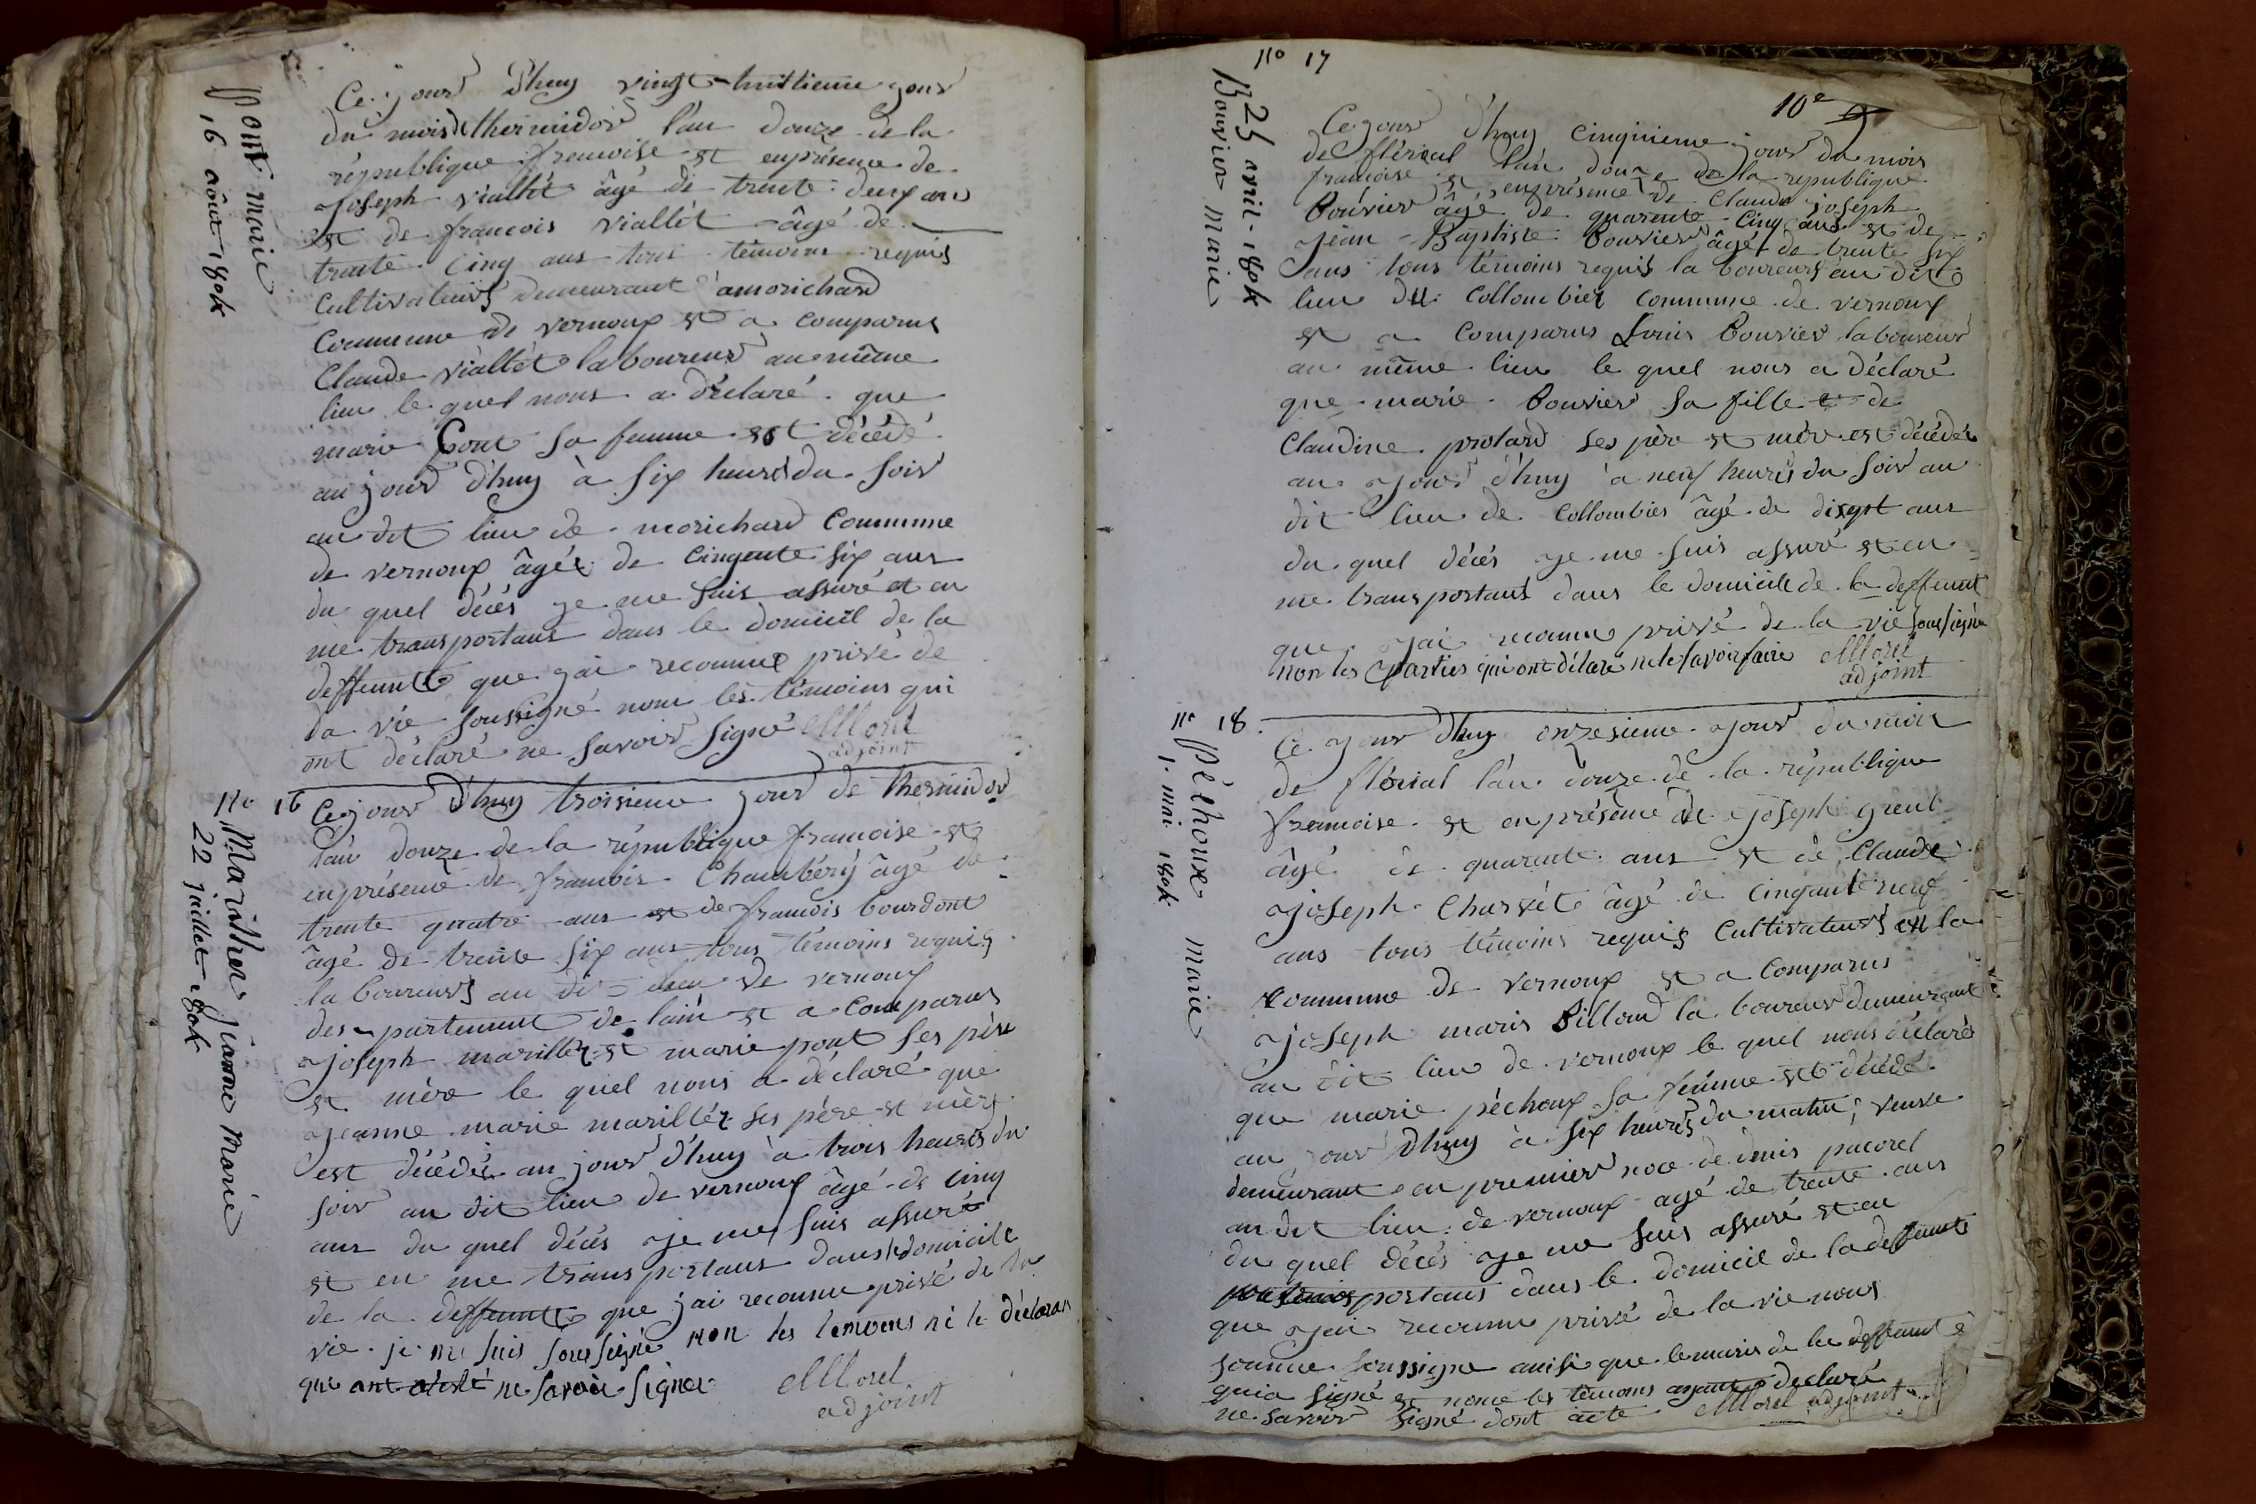 Pont marie
16 août 1804
Ce jour d'huy vingt-huitieme jour
du mois thermidor l'an douze de la
république francoise et enprésence de
Joseph viallét âgé de trente deux ans
et de francois viallét âgé de
trente cinq ans tous témoins requis
Cultivateurs demeurant amorichard
Commune de vernoux et a comparus
Claude viallét laboureur au même
lieu le quel nous a déclaré que
marie Pont sa femme est décédé
au jour d'huy à six heures du soir
au dit lieu de morichard Commune
de vernoux âgée de Cinqente six ans
du quel décés je me suis assuré et en
me transportant dans le domicil de la
deffeunte que jai reconnue privé de
la vie soussigné nom les témoins qui
ont déclaré ne savoir signé Morel
adjoint
No 16
Marillier Jeanne Marie
22 juillet 1804
Ce jour d'huy troisieme jour de thermidor
l'an douze de la république francoise et
enprésence de francois Chambéry âgé de
trente quatre ans et de francois bourdont
âgé de trente six ans tous témoins requis
laboureurs au dit lieu de vernoux
département de lain et a comparus
Joseph marillér et marie pont ses père
et mère le quel nous a déclaré que
Jeanne marie marillér ses père et mère
est décédée au jour d'huy à trois heures du
soir au dit lieu de vernoux âgé de cinq
ans du quel décés je me suis assuré
et en me transportant dans le domicile
de la deffeunte que jai reconnue privé de la
vie je me suis soussigné non les témoins ni le déclarant
que ont ne savoir signer Morel
adjoint
No 17
10e
Bouvier Marie
25 avril 1804
Ce jour d'huy cinqieme jour du mois
de flérial l'an douze de la republique
francoise et enprésence de Claude Joseph
Bouvier âgé de quarente Cinq ans et de
Jean-Baptiste Bouvier âgé de trente six
ans tous témoins requis laboureurs au dit
lieu du Collombier commune de vernoux
et a comparus Louis Bouvier laboureur
au même lieu le quel nous a déclaré
que marie Bouvier sa fille et de
Claudine protard ses père et mère est décédée
au jour d'huy à neuf heures du soir au
dit lieu de Collombier âgé de disept ans
du quel décés je me suis assuré et en
me transportant dans le domicile de la deffeunt
que jai reconnu privé de la vie soussigné
non les parties qui ont déclaré ne le savoir faire Morel
adjoint
No 18
Péchoux Marie
1. mai 1804
Ce jour d'huy onzesieme jour du mois
de florial l'an douze de la république
francoise et en présence de Joseph greut
âgé de quarente ans et de Claude
Joseph Charvét âgé de cinqante neuf
ans tous témoins requis Cultivateurs en la
commune de vernoux et a Comparus
Joseph maris Billoud laboureur demeurant
au dit lieu de vernoux le quel nous déclaré
que marie péchoux sa femme est décédé
au jour d'huy à six heures du matin, veuve
demeurant en premier noce de denis pacorel
au dit lieu de vernoux agé de trente ans
du quel décés je me suis assuré et en
portant dans le domicil de la deffeunte
que jai reconnu privé de la vie nous
somme soussigne ainsi que le maris de la deffeunte
quia signé et nonce les témoins ayant déclaré
ne savoir signé dont acte Morel adjoint